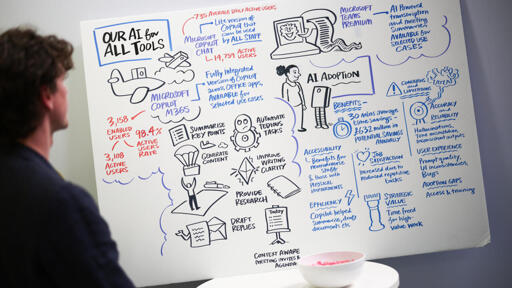 OUR AI for
ALL TOOLS
735 AVERAGE DAILY ACTIVE USERS
MICROSOFT
COPILOT
CHAT
Lite version of
Copilot that
can be used
by ALL STAFF
14,759 ACTIVE
USERS
MICROSOFT
TEAMS
PREMIUM
AI Powered
transcription
and meeting
summaries
AVAILABLE
for SELECTED USE
CASES
MICROSOFT
COPILOT
M365
Fully Integrated
version of Copilot
across OFFICE apps,
AVAILABLE for
selected use cases
3,158
ENABLED
USERS
98.4%
ACTIVE
USERS
RATE
3,108
ACTIVE
USERS
SUMMARISE
KEY POINTS
GENERATE
CONTENT
AUTOMATE
TEDIOUS
TASKS
IMPROVE
WRITING
CLARITY
PROVIDE
RESEARCH
DRAFT
REPLIES
Today
CONTEXT AWARE
MEETING INVITES &
AGENDA
AI ADOPTION
BENEFITS
30 mins average
time savings
£632 million in
POTENTIAL SAVINGS
ANNUALLY
ACCESSIBILITY
Benefits for
neurodiverse
staff
& those with
PHYSICAL
IMPAIRMENTS
JOB
SATISFACTION
Increased due to
reduced repetitive
tasks
EFFICIENCY
Copilot helped
summarise, draft
documents etc
STRATEGIC
VALUE
Time freed for
high value
work
CONCERNS and
LIMITATIONS
ACCURACY
and
RELIABILITY
Hallucinations,
inconsistent
outputs
USER EXPERIENCE
Prompt quality,
UI inconsistencies,
Bugs
ADOPTION GAPS
Access & training